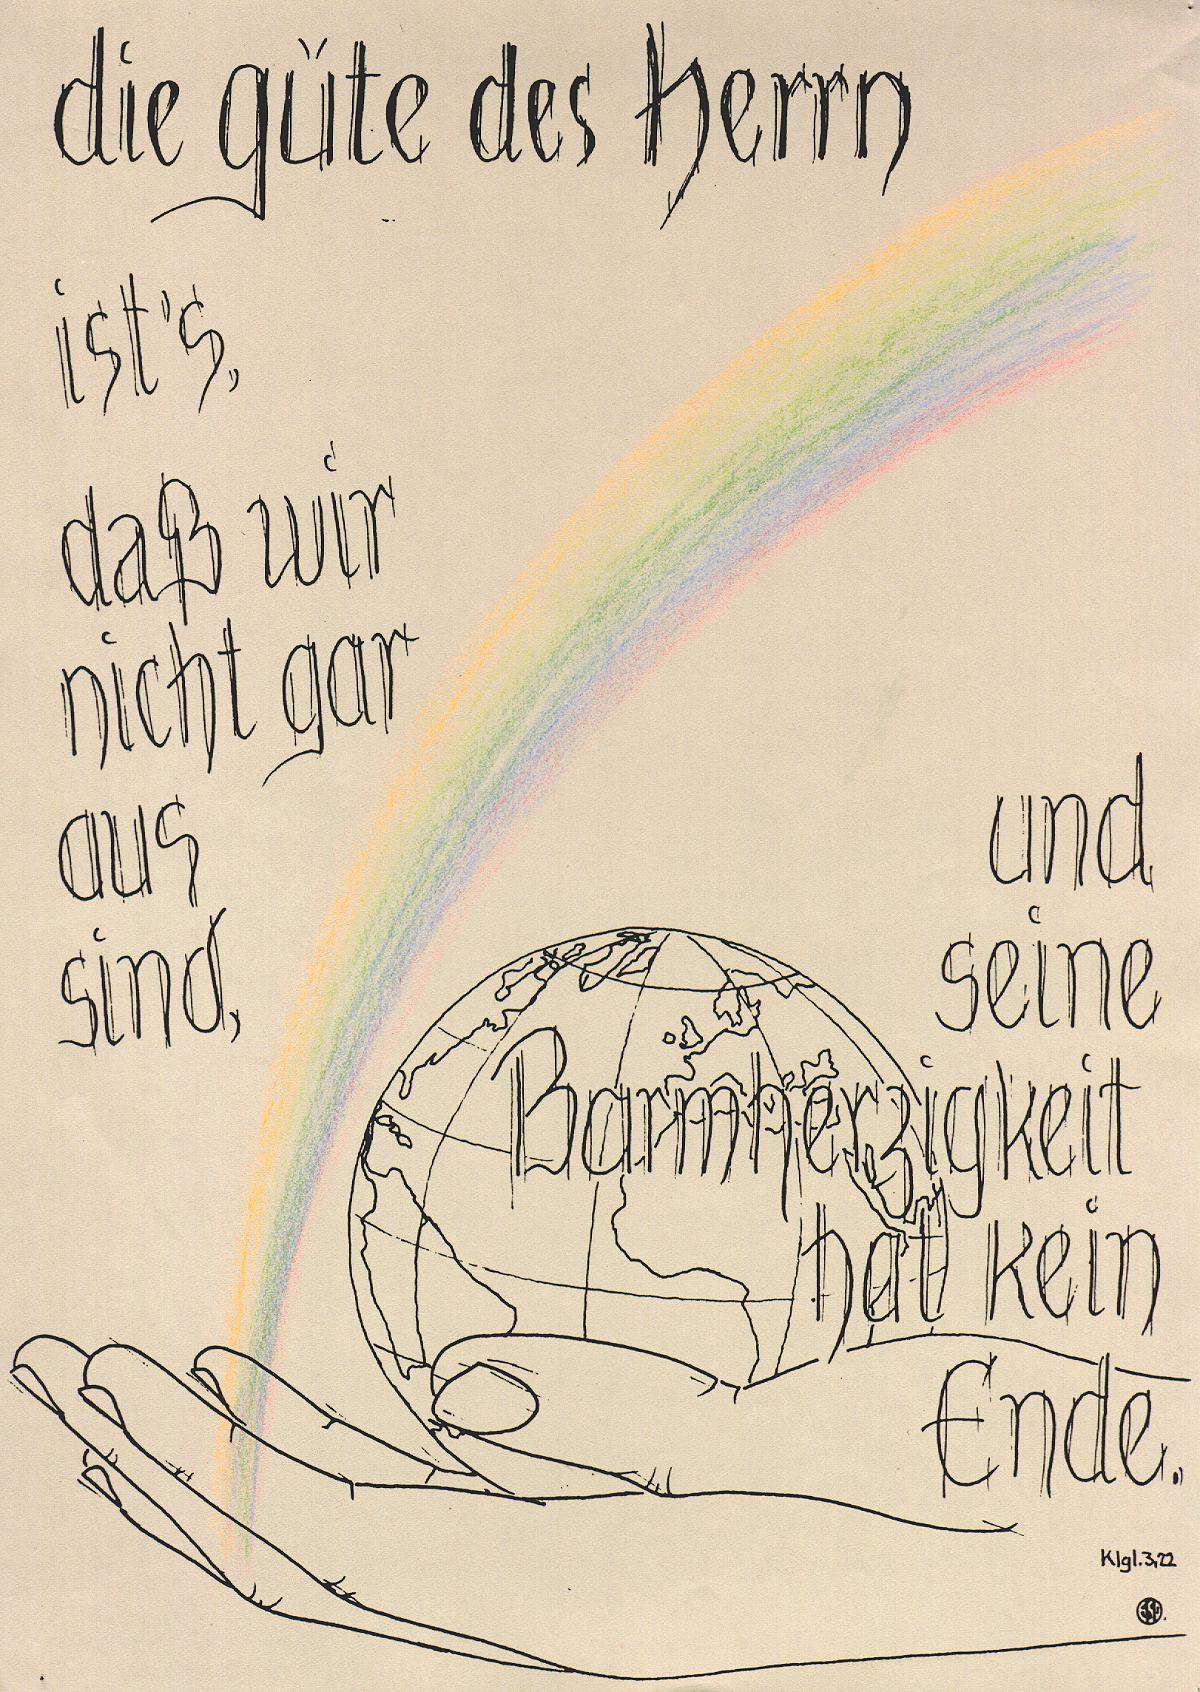 die güte des Herrn
ist's,
daß wir
nicht gar
aus
sind,
und
seine
Barmherzigkeit
hat kein
Ende.
Klgl.3,22